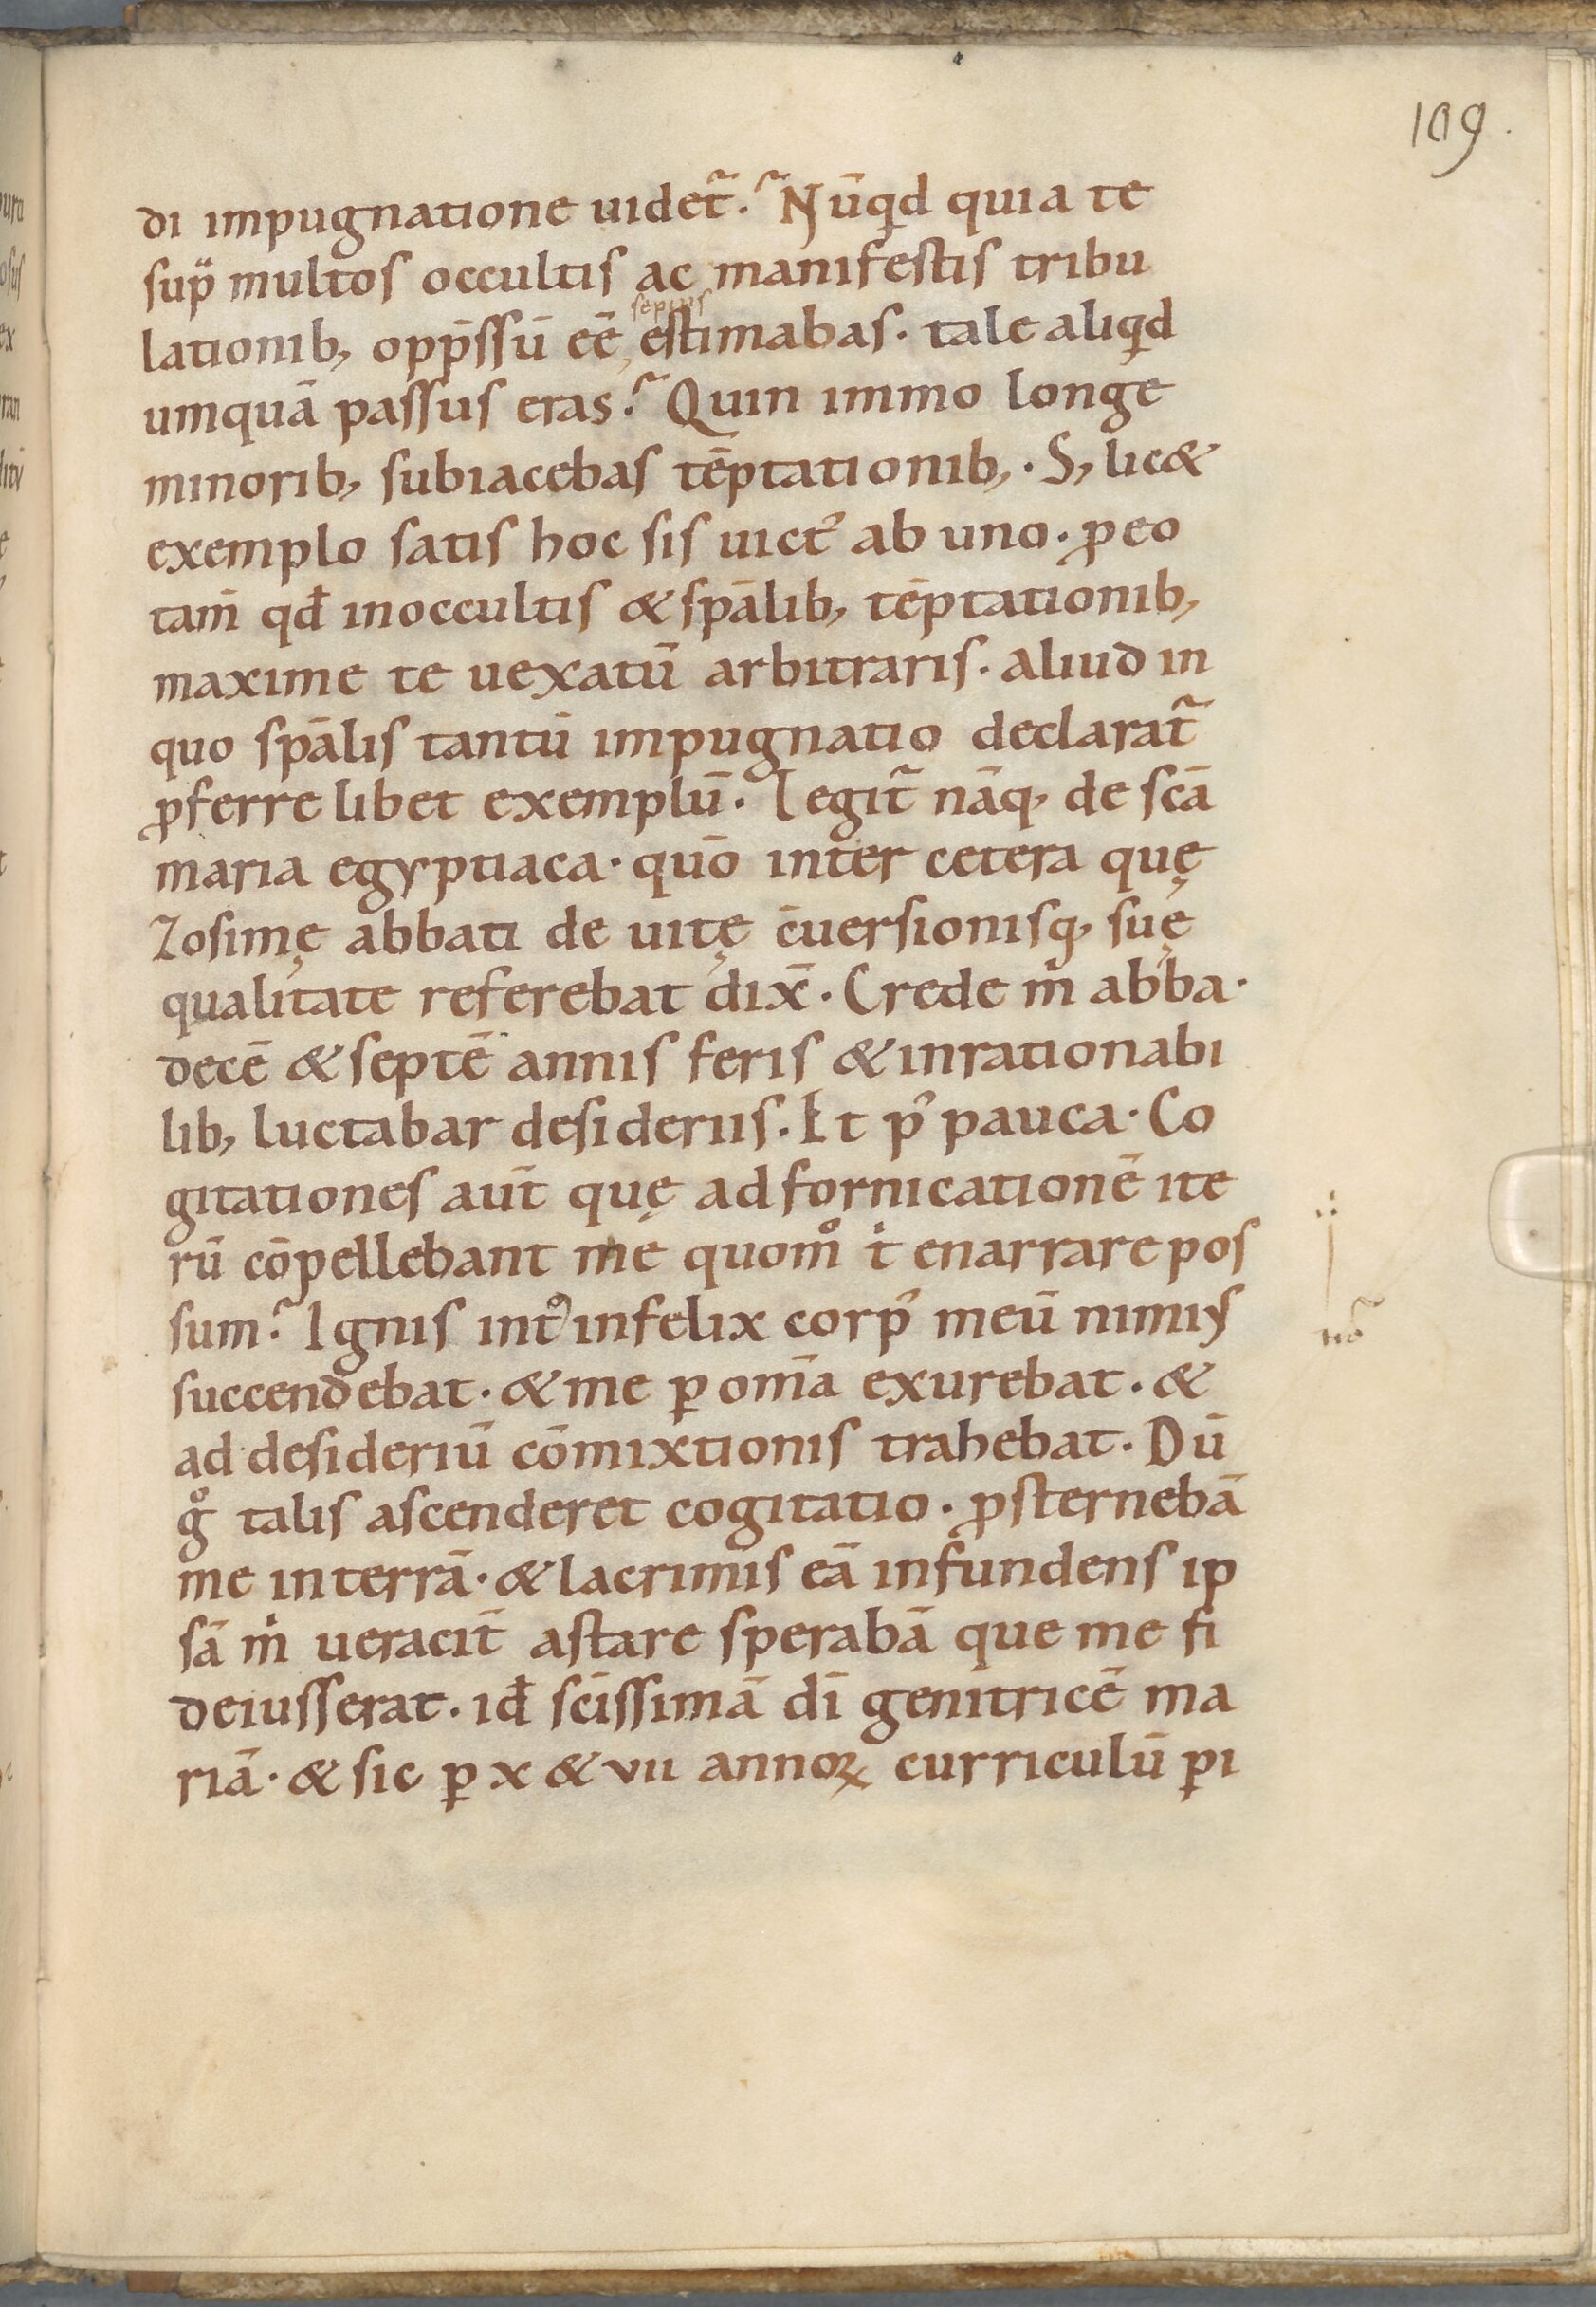 109.
di impugnatione uidet᷑. Nūqͥd quia te
sup̈ multos occultis ac manifestis tribu
sepius
lationib, opp̄ssū eē, estimabas. tale aliqͥd
umquā passus eras. Quin immo longe
minorib, subiacebas tēptationib,. S, lic&
exemplo satis hoc sis uict᾿ ab uno. ꝓ eo
tam̄ qđ in occultis & spālib, tēptationib,
maxime te uexatū arbitraris. aliud in
quo spālis tantū impugnatio declarat᷑
ꝓferre libet exemplū. Legit᷑ nāq, de scā
maria egyptiaca. quō inter cetera quę
Zosimę abbati de uitę c̄uersionisq, suę
qualitate referebat dix̄. Crede m̍ abba.
decē & septē annis feris & inrationabi
lib, luctabar desideriis. Et p᾿ pauca. Co
gitationes aut̄ quę ad fornicationē ite
rū cōpellebant me quomͦ t̍ enarrare pos
sum. Ignis int᾿ infelix corp᾿ meū nimis
succendebat. & me ꝑ om̄a exurebat. &
ad desideriū cōmixtionis trahebat. Dū
gͦ talis ascenderet cogitatio. ꝓsternebā
me in terrā. & lacrimis eā infundens ip
sā m̍ ueracit̄ astare sperabā que me fi
deiusserat. iđ scissimā dī genitricē ma
riā. & sic ꝑ x & vii annoꝝ curriculū pi
no᷑